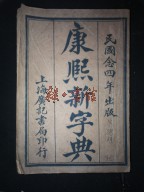 民國念四年出版
康熙新字典
上海廣記書局印行